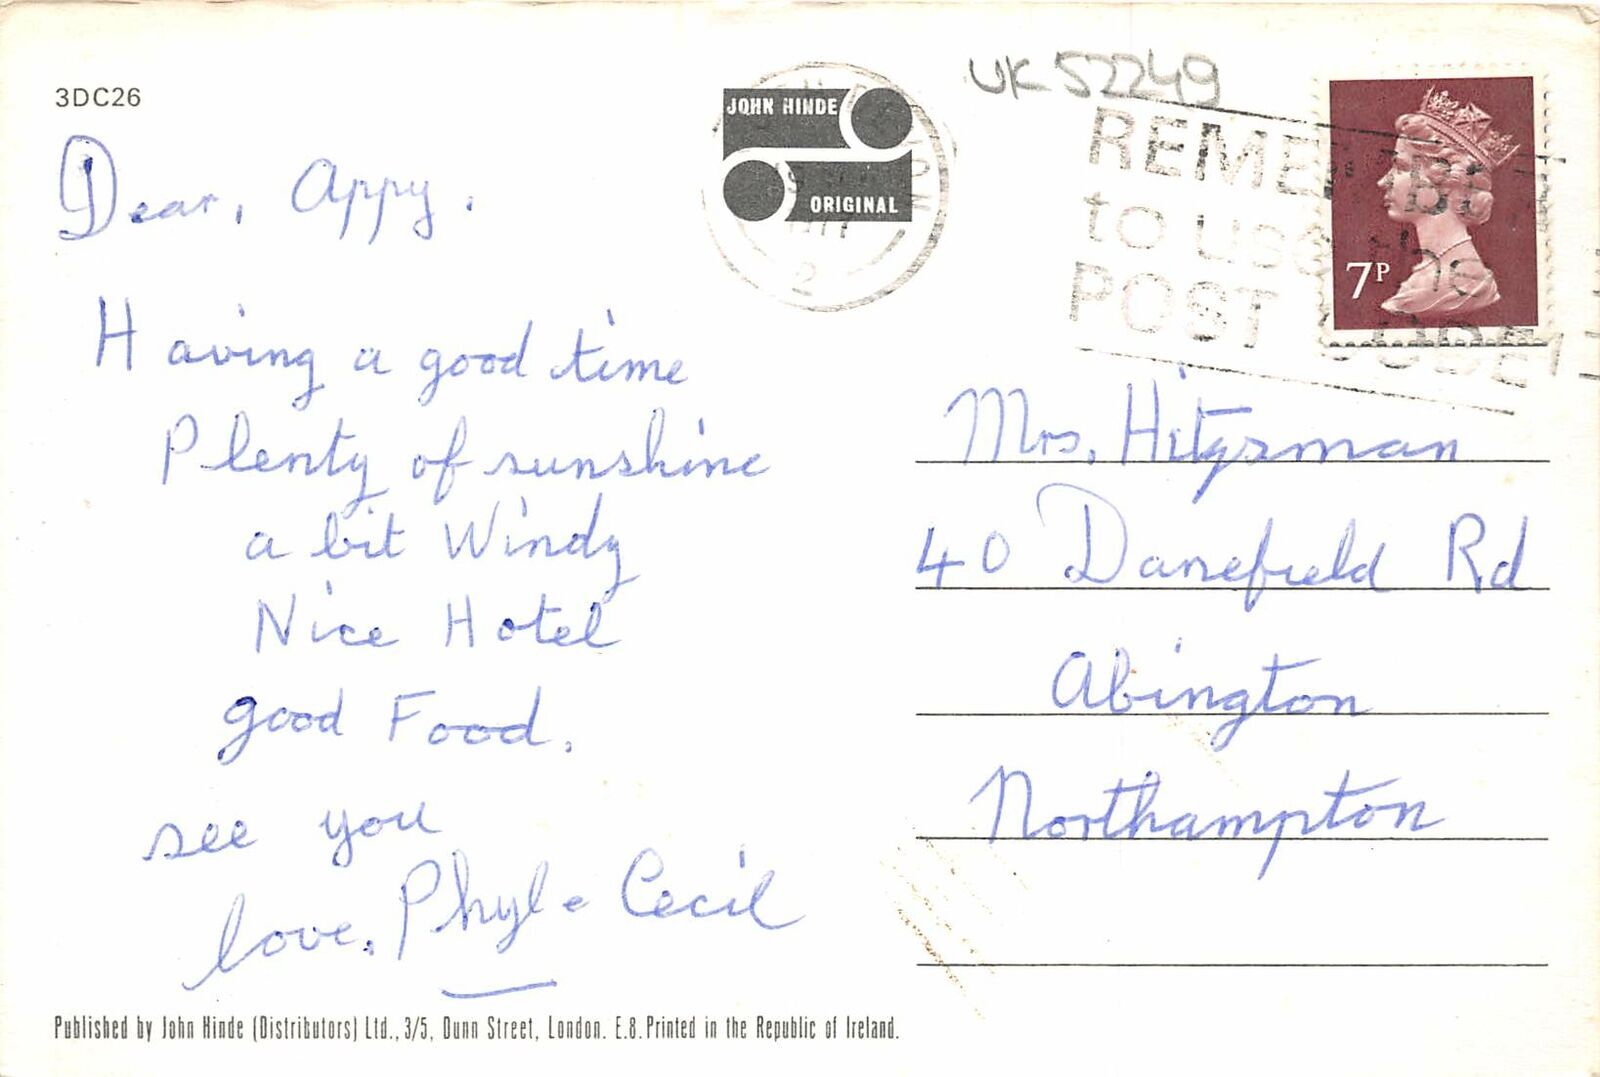 3DC26
JOHN HINDE
ORIGINAL
UK 52249
REMEMBER
to use the
POST CODE
7P
Dear, Appy.
Having a good time
Plenty of sunshine
a bit Windy
Nice Hotel
good Food.
see you
love, Phyl e Cecil
Mrs, Hitzsman
40 Danefield Rd
Abington
Northampton
Published by John Hinde (Distributors) Ltd., 3/5, Dunn Street, London. E.8. Printed in the Republic of Ireland.